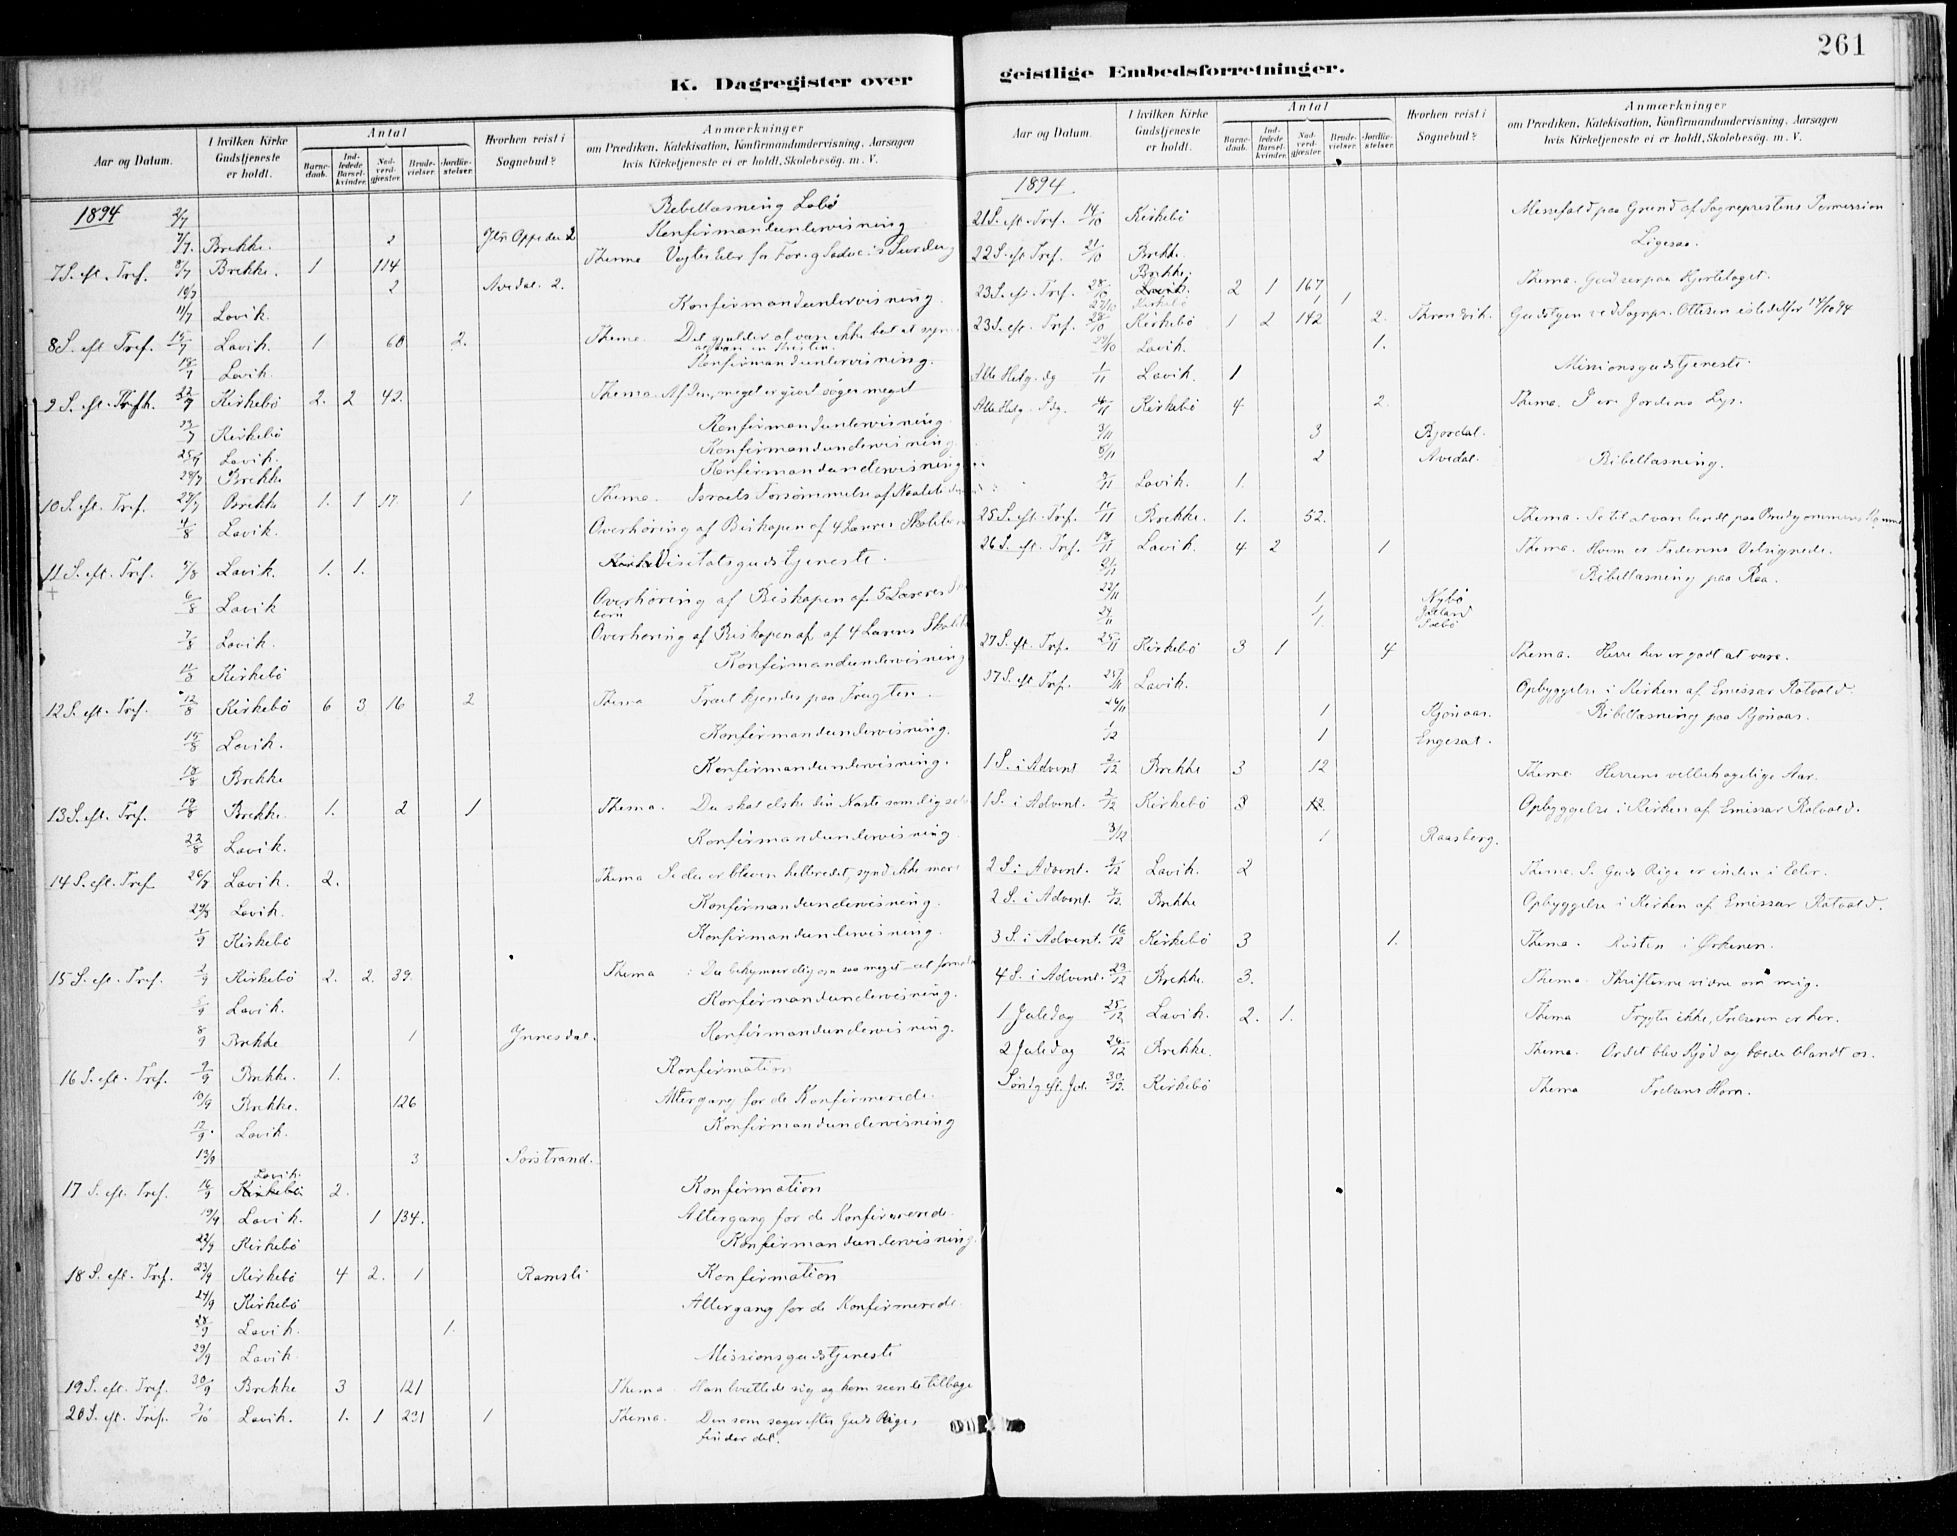 K. Dagregister over
Aar og Datum.
I hvilken Kirke Gudstjeneste er holdt.
Antal
Barnedaab.
Indledede Barselkvinder.
Nadverdgjæster
Brudevielser
Jordfæstelser
Hvorhen reist i Sognebud?
Anmærkninger
om Prædiken, Katekisation, Konfirmandundervisning, Aarsagen
hvis Kirketjeneste ei er holdt, Skolebesög. m. V.
1894 2/7 Bibellæsning
7/7. Brekke. 2 Konfirmandundervisning
7 S. eft. Tref. 8/7 Brekke. 1 114 Thema
10/7 2 Avedal. 2.
11/7 Lavik. Konfirmandundervisning.
8 S. eft. Tref. 15/7 Lavik. 1 60 2. Thema. Det gjælder at være ikke
18/7 Lavik. Konfirmandundervisning.
9 S. eft. Trefh. 22/7 Kirkebö 2. 2 42. Thema. Af den, meget er givet söges meget
23/7 Kirkebö Konfirmandundervisning
25/7 Lavik. Konfirmandundervisning
28/7 Brekke Konfirmandundervisning
10 S. eft. Tref. 29/7 Brekke 1. 1 17. 1 Thema. Israels Forsömmelse af Naadetiden
4/8 Lavik. Overhöring af Biskopen af 4 Læreres Skolebörn
11 S. eft. Tref. 5/8 Lavik. 1. 1. Visitatsgudstjeneste.
6/8 Lavik Overhöring af Biskopen af 5 Læreres
börn
7/8 Lavik. Overhöring af Biskopen af af 4 Læreres
11/8 Kirkebö Konfirmandundervisning
12 S. eft. Tref. 12/8 Kirkebö 6 3 16 2 Thema Træet kjendes paa Frugten.
15/8 Lavik. Konfirmandundervisning.
18/8 Brekke Konfirmandundervisning.
13 S. eft. Tref. 19/8 Brekke. 1. 2 1 Thema. Du skal elske din Næste som dig selv
22/8 Lavik. Konfirmandundervisning
14 S. eft. Tref. 26/8 Lavik. 2. Thema Se du er bleven helbredet, synd ikke mere
29/8 Lavik. Konfirmandundervisning.
1/9 Kirkebö Konfirmandundervisning.
15 S. eft. Tref. 2/9 Kirkebö 2. 2. 39. Thema : Du bekymrer dig om saa meget
5/9 Lavik. Konfirmandundervisning.
8/9 Brekke 1 Ynnesdal. Konfirmandundervisning.
16 S. eft. Tref. 9/9 Brekke. 1. Konfirmation
10/9 Brekke. 126 Altergang for de Konfirmerede.
12/9. Lavik. Konfirmandundervisning
13/9 3 Sörstrand.
17 S. eft. Tref. 16/9 Lavik. 2. Konfirmation
19/9 Lavik. 1 134. Altergang for de Konfirmerede.
22/9 Kirkebö Konfirmandundervisning.
18 S. eft. Tref. 23/9 Kirkebö 4 2. 1 Ramsli Konfirmation
24/9 Kirkebö Altergang for de Konfirmerede.
28/9 Lavik. 1.
29/9 Lavik Missionsgudstjeneste
19 S. eft. Tref. 30/9 Brekke 3 121 Thema. Han tvættede sig og kom seende tilbage
20 S. eft. Tref. 7/10 Lavik. 1. 1 231 1 Thema. Den som söger efter Guds Rige,
finder det.
geistlige Embedsforretninger.
261
Aar og Datum.
I hvilken Kirke Gudstjeneste er holdt.
Antal
Barnedaab.
Indledede Barselkvinder.
Nadverdgjæster
Brudevielser.
Jordfæstelser.
Hvorhen reist i Sognebud?
Anmærkninger
om Prædiken, Katekisation, Konfirmandundervisning, Aarsagen
hvis Kirketjeneste ei er holdt, Skolebesög. m. V.
1894.
21 S. eft. Tref. 14/10 Kirkebö Messefald paa Grund af Sogneprestens Permission
22 S. eft Tref. 21/10 Brekke. Ligesaa.
23 S. eft. Tref. 28/10 Brekke. 2 1 167 Thema. Gud ser paa Hjertelaget.
27/10 Kirkebö 1 1
23 S. eft. Tref. 28/10 Kirkebö 1 2 142 2. Gudstjen ved Sognepr. Ottesen
29/10 Lavik. 1.
Alle Helg. dg 1/11 Lavik. 1 Missionsgudstjeneste
Alle Helg. Sdg. 4/11 Kirkebö 4 2. Thema. I ere Jordens Lys.
3/11 3 Bjordal.
6/11 2 Avedal. Bibellæsning.
9/11 Lavik. 1.
25 S. eft. Tref. 11/11 Brekke. 1. 52. Thema. Se til at være beredt paa Brudgommens Komme
26 S. eft. Tref. 18/11 Lavik. 4 2 1 Thema. Hvem er Faderens Velsignede.
21/11 Bibellæsning paa Raa.
22/11 1 Nybö
24/11 1
27 S. eft. Tref. 25/11 Kirkebö 3 1 4 Thema. Herre her er godt at være.
27 S. eft Tref. 25/11 Lavik. Opbyggelse i Kirken af Emissær Rotvold.
26/11 1 Bibellæsning paa
1/12 1 Engesæt.
1 S. i Advent 2/12 Brekke 3 12 Thema Herrens velbehagelige Aar.
1 S. i Advent. 2/12 Kirkebö 3 Opbyggelse i Kirken af Emissær Rotvold.
3/12 1 Raasberg.
2 S. i Advent. 9/12 Lavik. 2 Thema. S. Guds Rige er inden i Eder.
2 S. i Advent. 9/12 Brekke Opbyggelse i Kirken af Emissær Rotvold.
3 S. i Advent. 16/12 Kirkebö 3 1. Thema. Rösten i Ørkenen.
4 S. i Advent. 23/12 Brekke 3. Thema. Skrifterne vidne om mig.
1 Juledag 25/12 Lavik. 2. 1. Thema Frygter ikke, Frelseren er her.
2 Juledag 26/12 Brekke. Thema. Ordet blev Kjöd og boede blandt os.
Söndg eft. Jul. 30/12 Kirkebö Thema Frelsens Horn.